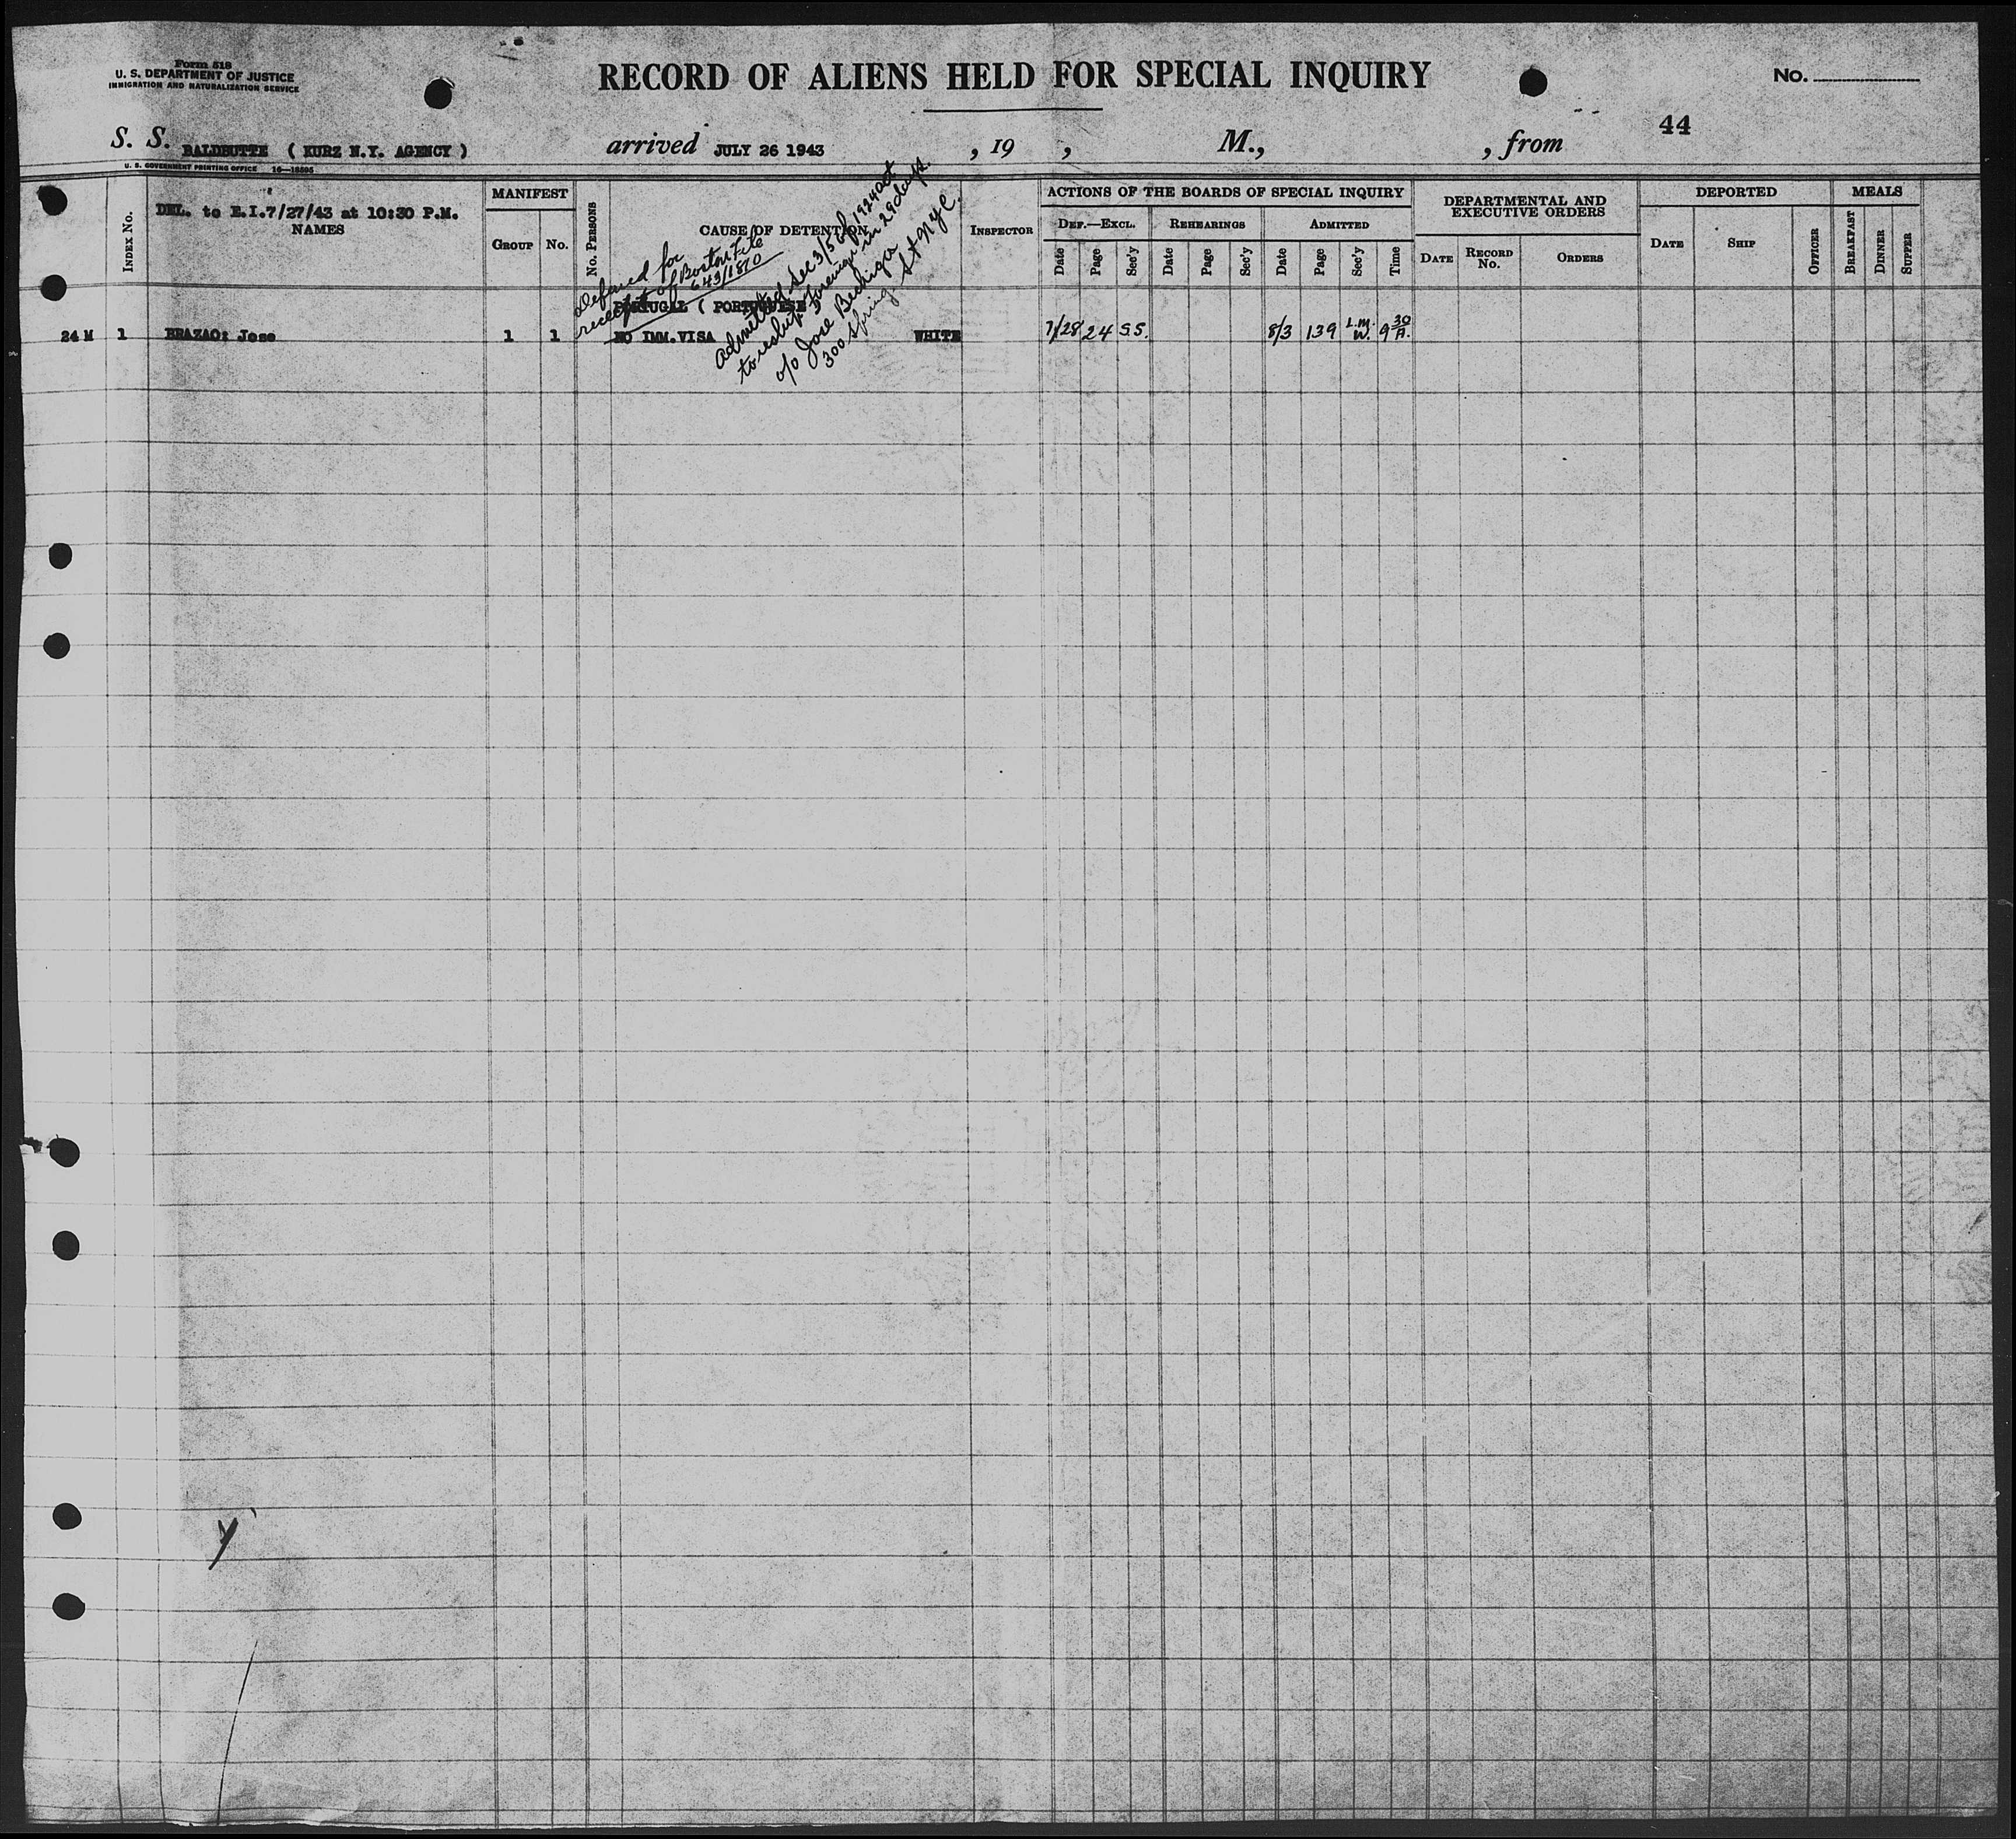 Form 518
U. S. DEPARTMENT OF JUSTICE
IMMIGRATION AND NATURALIZATION SERVICE
RECORD OF ALIENS HELD FOR SPECIAL INQUIRY
No.
44
S. S. BALDBUTTE ( KURZ N.Y. AGENCY ) arrived JULY 26 1943 , 19 , M., , from
U. S. GOVERNMENT PRINTING OFFICE 16—18595
Index No.
DEL. to E.I.7/27/43 at 10:30 P.M.
NAMES
MANIFEST
Group No.
No. Persons
CAUSE OF DETENTION
Inspector
ACTIONS OF THE BOARDS OF SPECIAL INQUIRY
Def.—Excl. Rehearings Admitted
Date Page Sec'y Date Page Sec'y Date Page Sec'y Time
DEPARTMENTAL AND
EXECUTIVE ORDERS
Date Record No. Orders
DEPORTED
Date Ship Officer
MEALS
Breakfast Dinner Supper
Deferred for
receipt of Boston File
643/1810
Admitted Sec 3(5) of 1924 act
to reship foreign in 29 days.
c/o Jose
300 Spring St NYC.
PORTUGAL ( PORTUGUESE
24 M 1 BRAZAO: Jose 1 1 NO IMM.VISA WHITE 7/28 24 S.S. 8/3 139 L.M.W. 9 30 A.
y